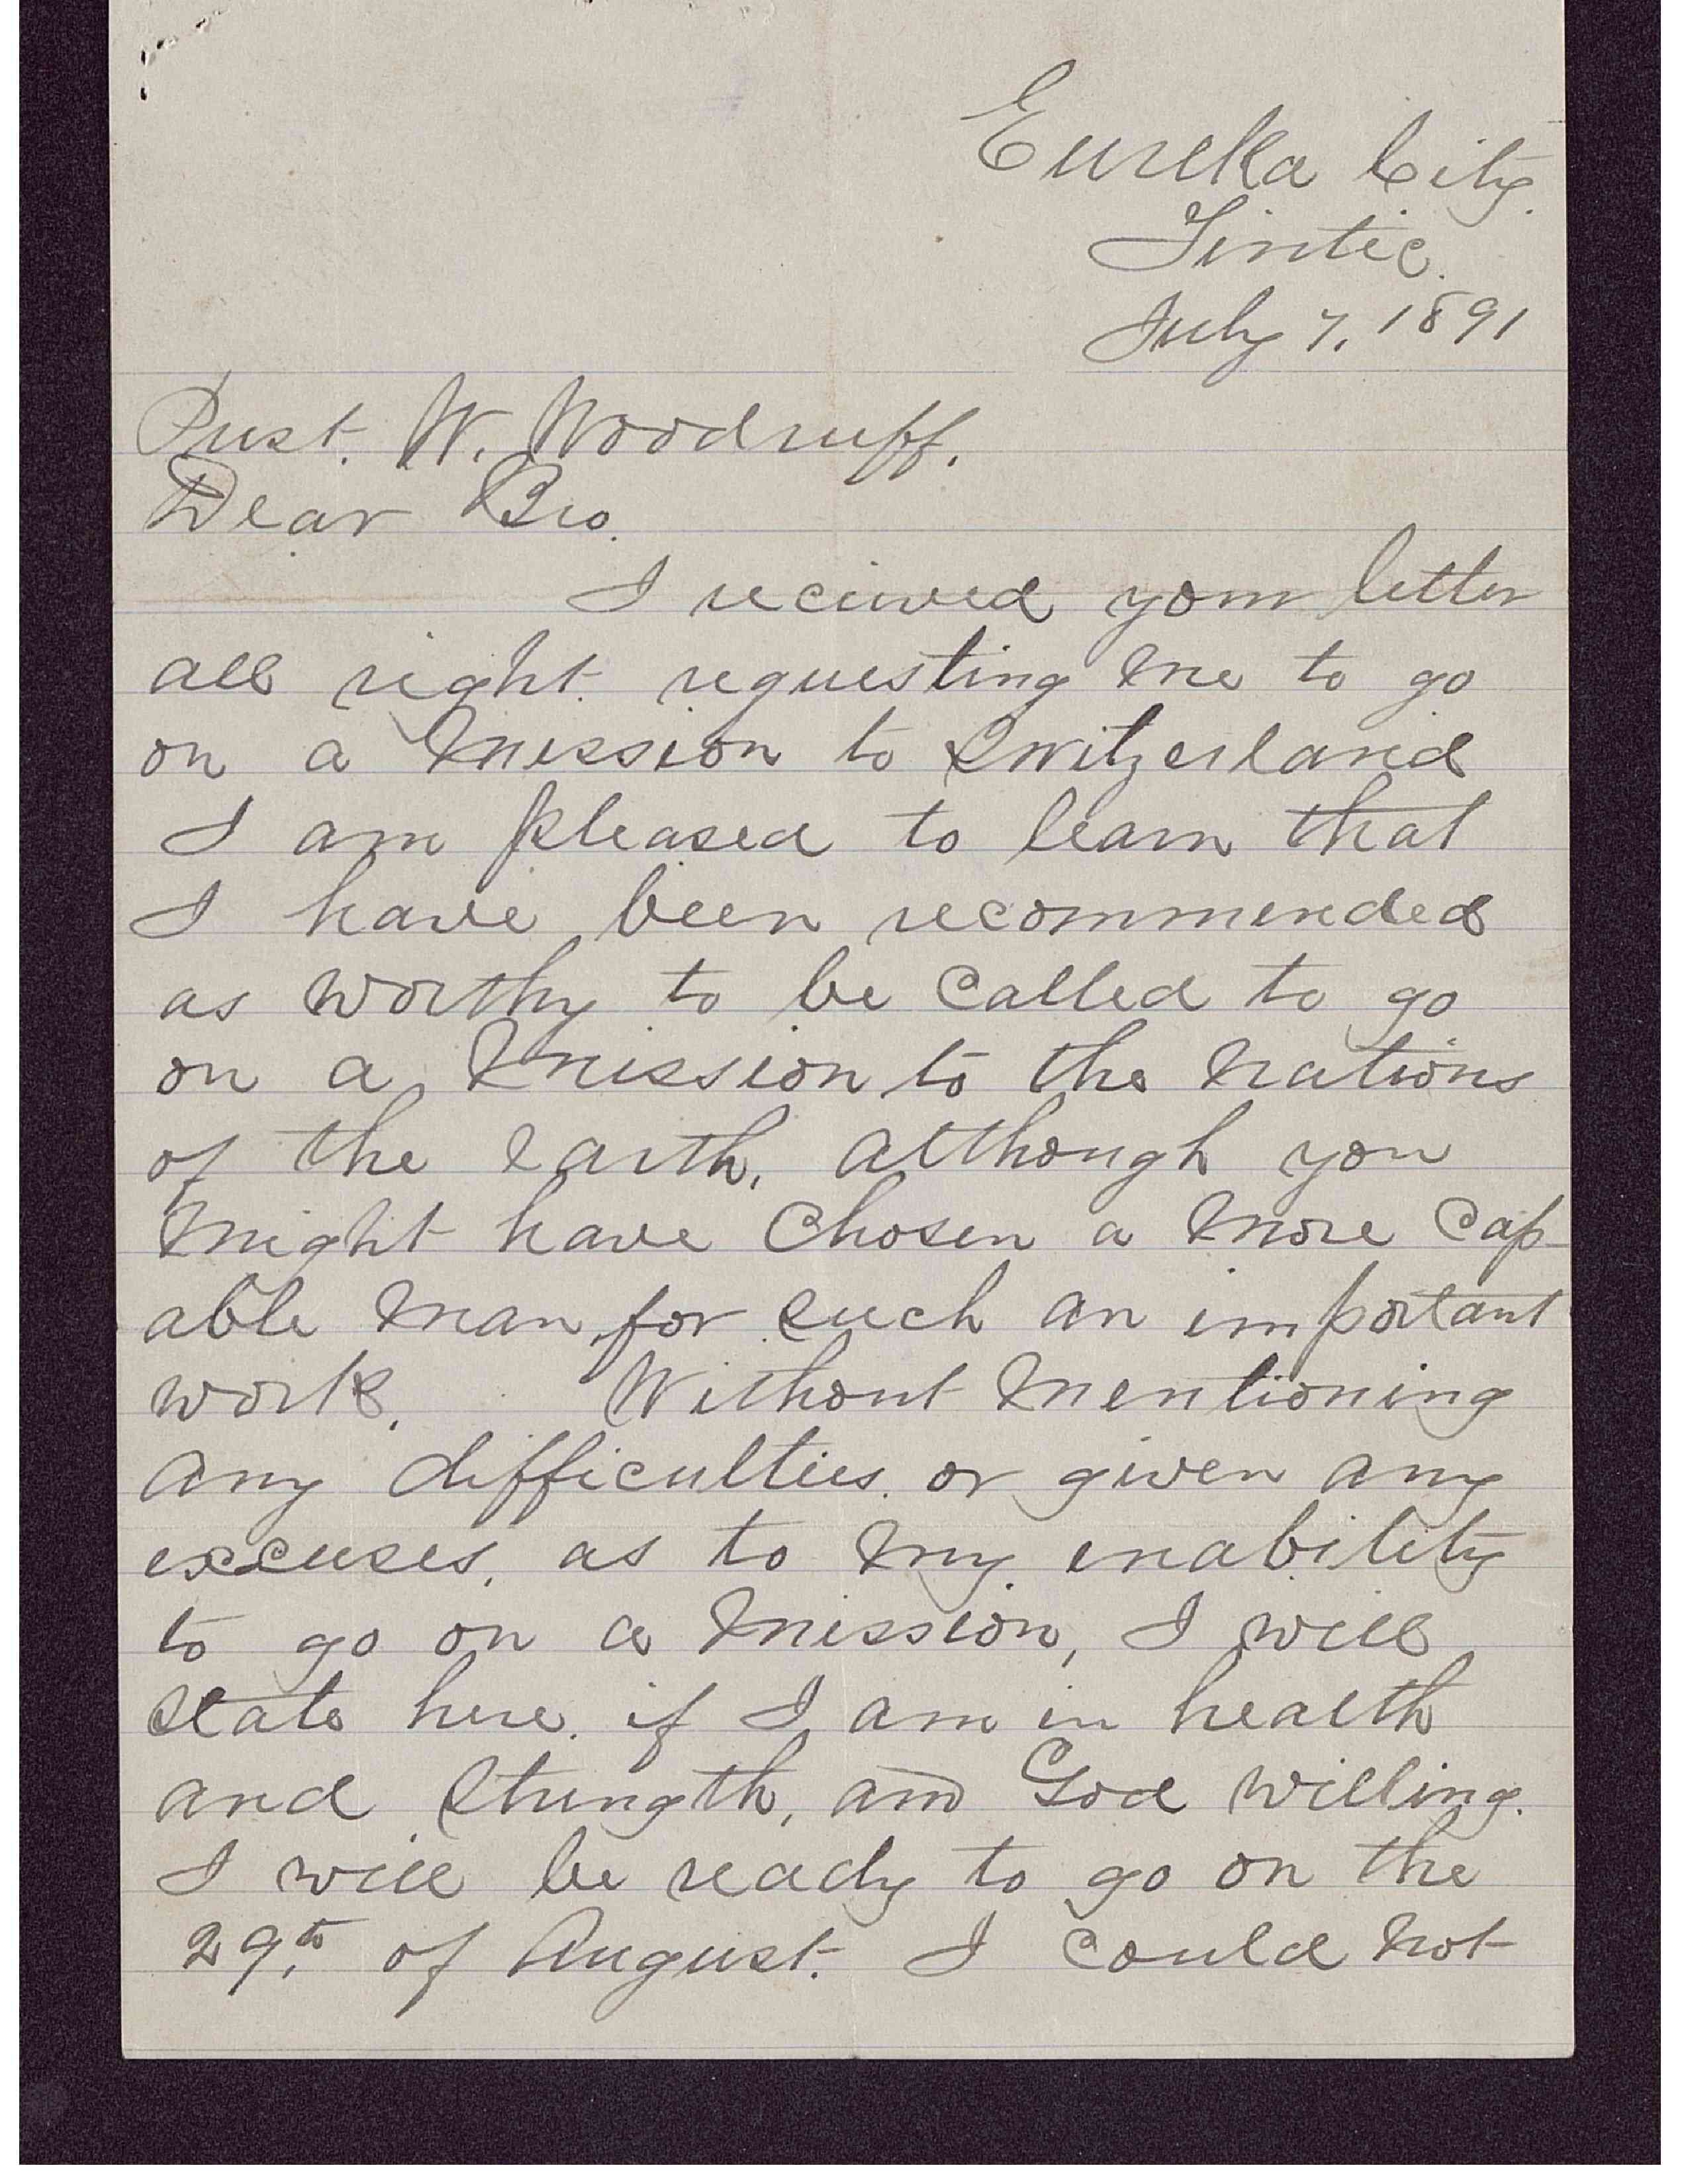 Eureka City.
Tintic.
July 7, 1891
Prest. W. Woodruff.
Dear Bro.
I recieved your letter
all right. requesting me to go
on a mission to Switzerland
I am pleased to learn that
I have been recommended
as worthy to be called to go
on a mission to the nations
of the earth, although you
might have chosen a more cap-
able man, for such an important
work. Without mentioning
any difficulties. or given any
excuses, as to my inability
to go on a mission, I will
state here. if I am in health
and strength, and God willing.
I will be ready to go on the
29th of August. I could not